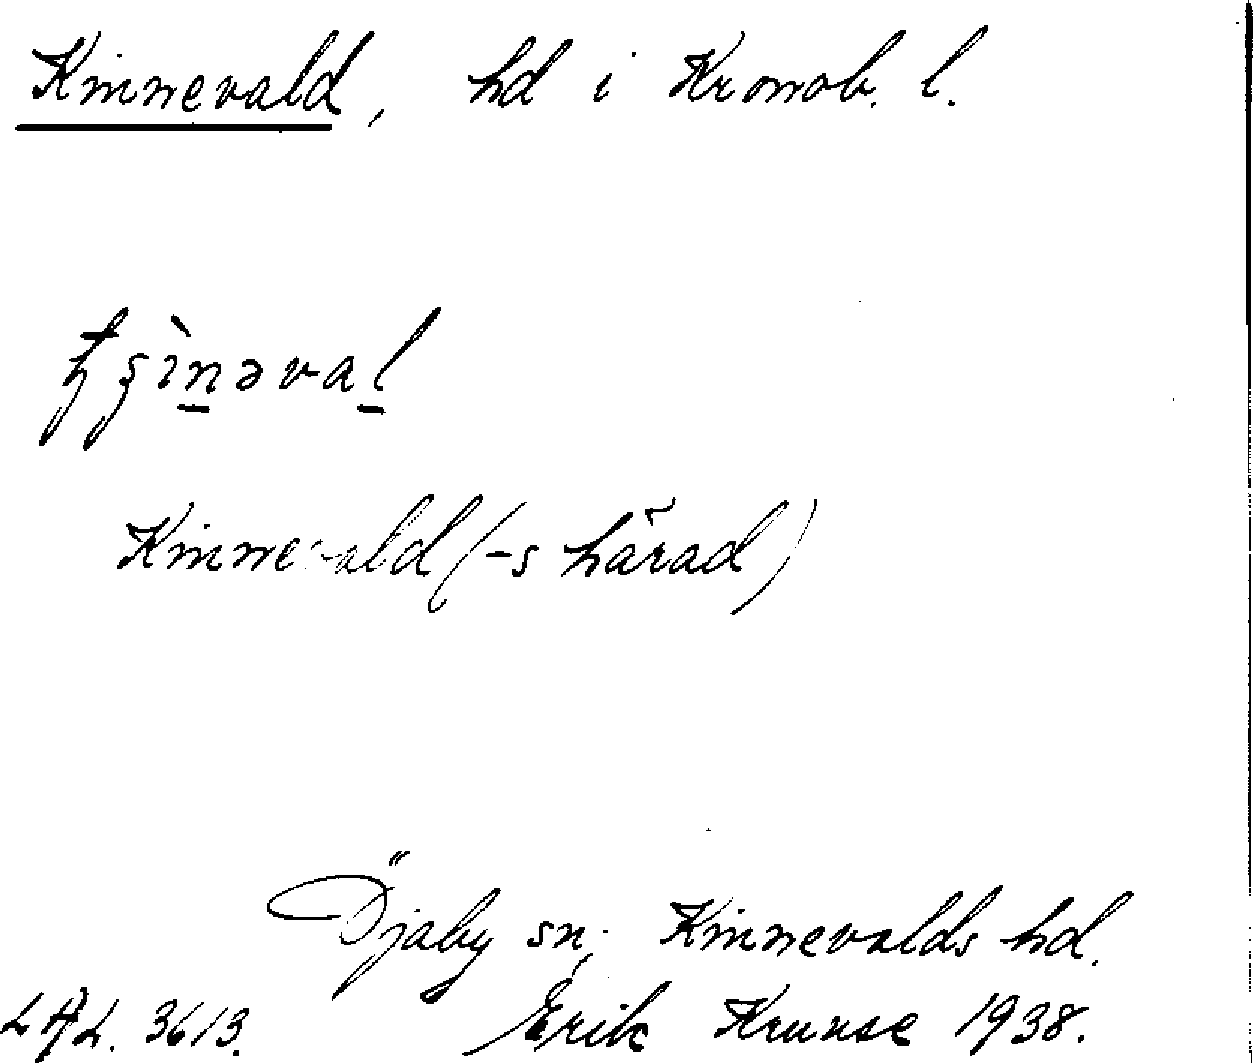 Kinnevald, hd i Kronob. l.
Kinnevald (-s härad)
Öjaby sn, Kinnevalds hd.
LAL. 3613. Erik Kruuse 1938.